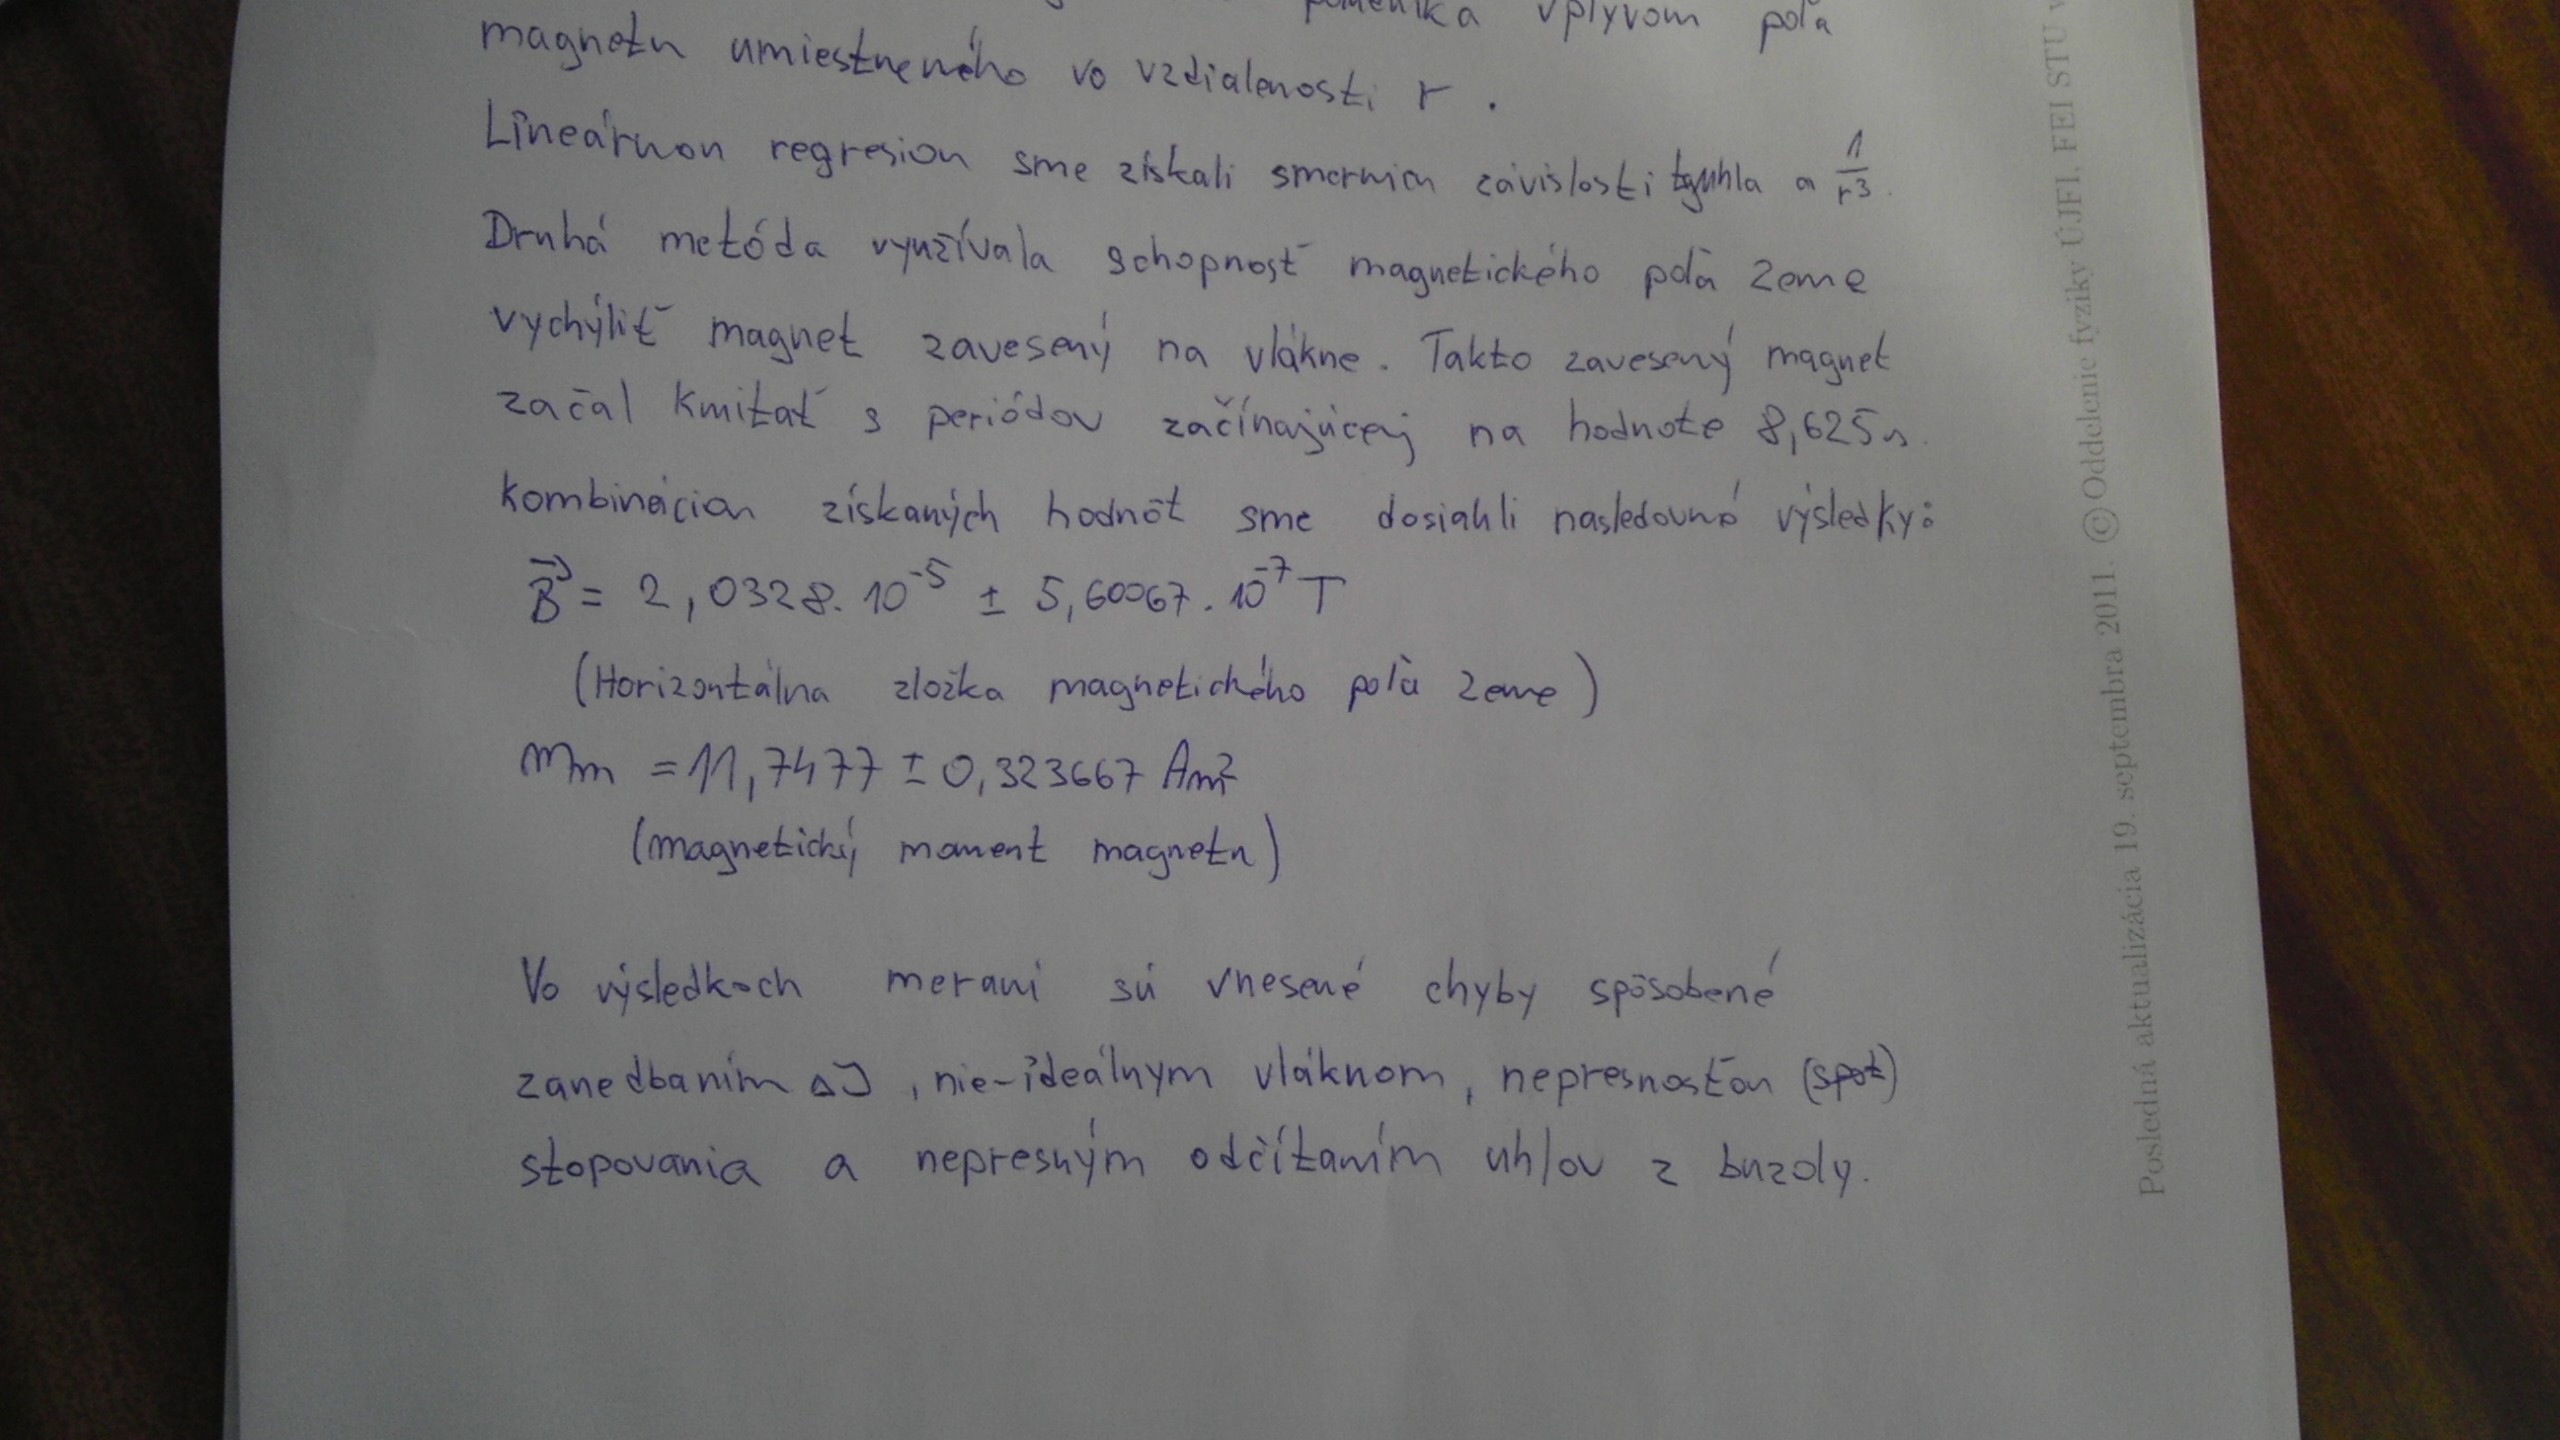 vplyvom poľa
magnetu umiestneného vo vzdialenosti r .
Lineárnou regresiou sme získali smernicu závislosti tguhla a 1/r³.
Druhá metóda využívala schopnosť magnetického poľa Zeme
vychýliť magnet zavesený na vlákne. Takto zavesený magnet
začal kmitať s periódou začínajúcej na hodnote 8,625s.
kombináciou získaných hodnôt sme dosiahli nasledovné výsledky:
B⃗ = 2,0328.10⁻⁵ ± 5,60067.10⁻⁷ T
(Horizontálna zložka magnetického poľa Zeme)
mm = 11,7477 ± 0,323667 Am²
(magnetický moment magnetu)
Vo výsledkoch meraní sú vnesené chyby spôsobené
zanedbaním ΔJ , nie-ideálnym vláknom, nepresnosťou (spot)
stopovania a nepresným odčítaním uhlov z buzoly.
Posledná aktualizácia 19. septembra 2011. ©Oddelenie fyziky ÚJFI, FEI STU v